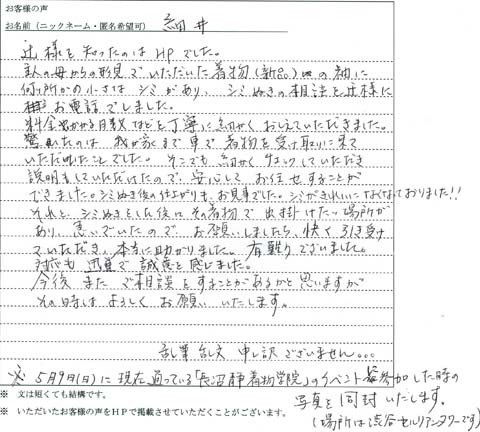 お客様の声
お名前（ニックネーム・匿名希望可） 細井
辻様を知ったのはHPでした。
主人の母からの形見でいただいた着物(新品)の袖に
何ヶ所かの小さなシミがあり、シミぬきの相談を辻様に
お電話でしました。
料金やかかる日数などを丁寧に細かくおしえていただきました。
驚いたのは我が家まで車で着物を受け取りに来て
いただれたことでした。そこでも細かくチェックしていただき
説明もしていただけたので、安心してお任せすることが
できました。シミぬき後の仕上がりも、お見事でした。シミがきれいになくなっておりました!!
それと、シミぬきをした後にその着物で出掛けたい場所が
あり、急いでいたのでお願いしましたら、快く引き受け
ていただき、本当に助かりました。有難うございました。
対応も迅速で誠意を感じました。
今後またご相談をすることがあるかと思いますが
その時はよろしくお願いいたします。
乱筆乱文申し訳ございません...
※ 5月9日(日)に現在通っている「長沼静着物学院」のイベント参加した時の
写真を同封いたします。
(場所は渋谷セルリアンタワーです)
※ 文は短くても結構です。
※ いただいたお客様の声をHPで掲載させていただくことがございます。